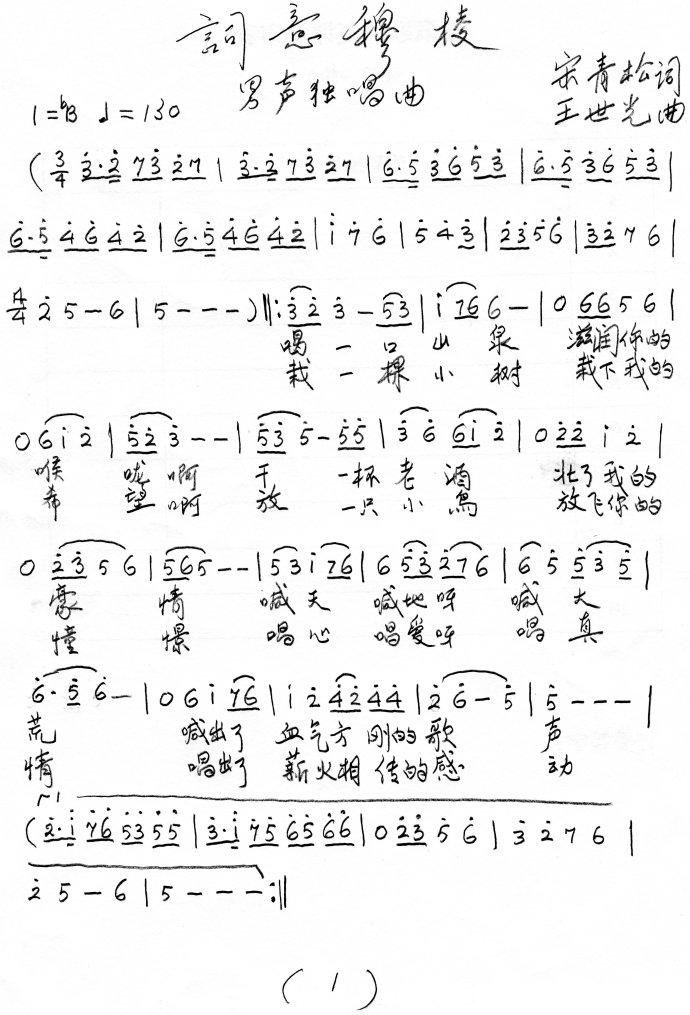 詞意穆棱
男声独唱曲
宋青松词
王世光曲
1=♭B ♩=130
(3/4 3·2 73 27 | 3·2 73 27 | 6·5 36 53 | 6·5 36 53 |
6·5 46 42 | 6·5 46 42 | 1 7 6 | 5 4 3 | 23 56 | 32 7 6 |
4/4 2 5 – 6 | 5 – – – ) ‖: 32 3 – 53 | 1 76 6 – | 0 66 5 6 |
喝一口山泉 滋润你的
栽一棵小树 栽下我的
0 6 1 2 | 52 3 – – | 53 5 – 55 | 3 6 61 2 | 0 22 1 2 |
喉咙啊 干一杯老酒 壮了我的
希望啊 放一只小鳥 放飞你的
0 23 5 6 | 565 – – | 53 1 76 | 6 53 276 | 6 5 53 5 |
豪情 喊天喊地呀喊大
憧憬 唱心唱爱呀唱真
6·5 6 – | 0 6 1 76 | 1 2 42 44 | 2 6 – 5 | 5 – – – |
荒 喊出了血气方刚的歌声
情 唱出了薪火相传的感动
(2·1 76 53 55 | 3·1 75 65 66 | 0 23 5 6 | 3 2 7 6 |
2 5 – 6 | 5 – – – :‖
(1)